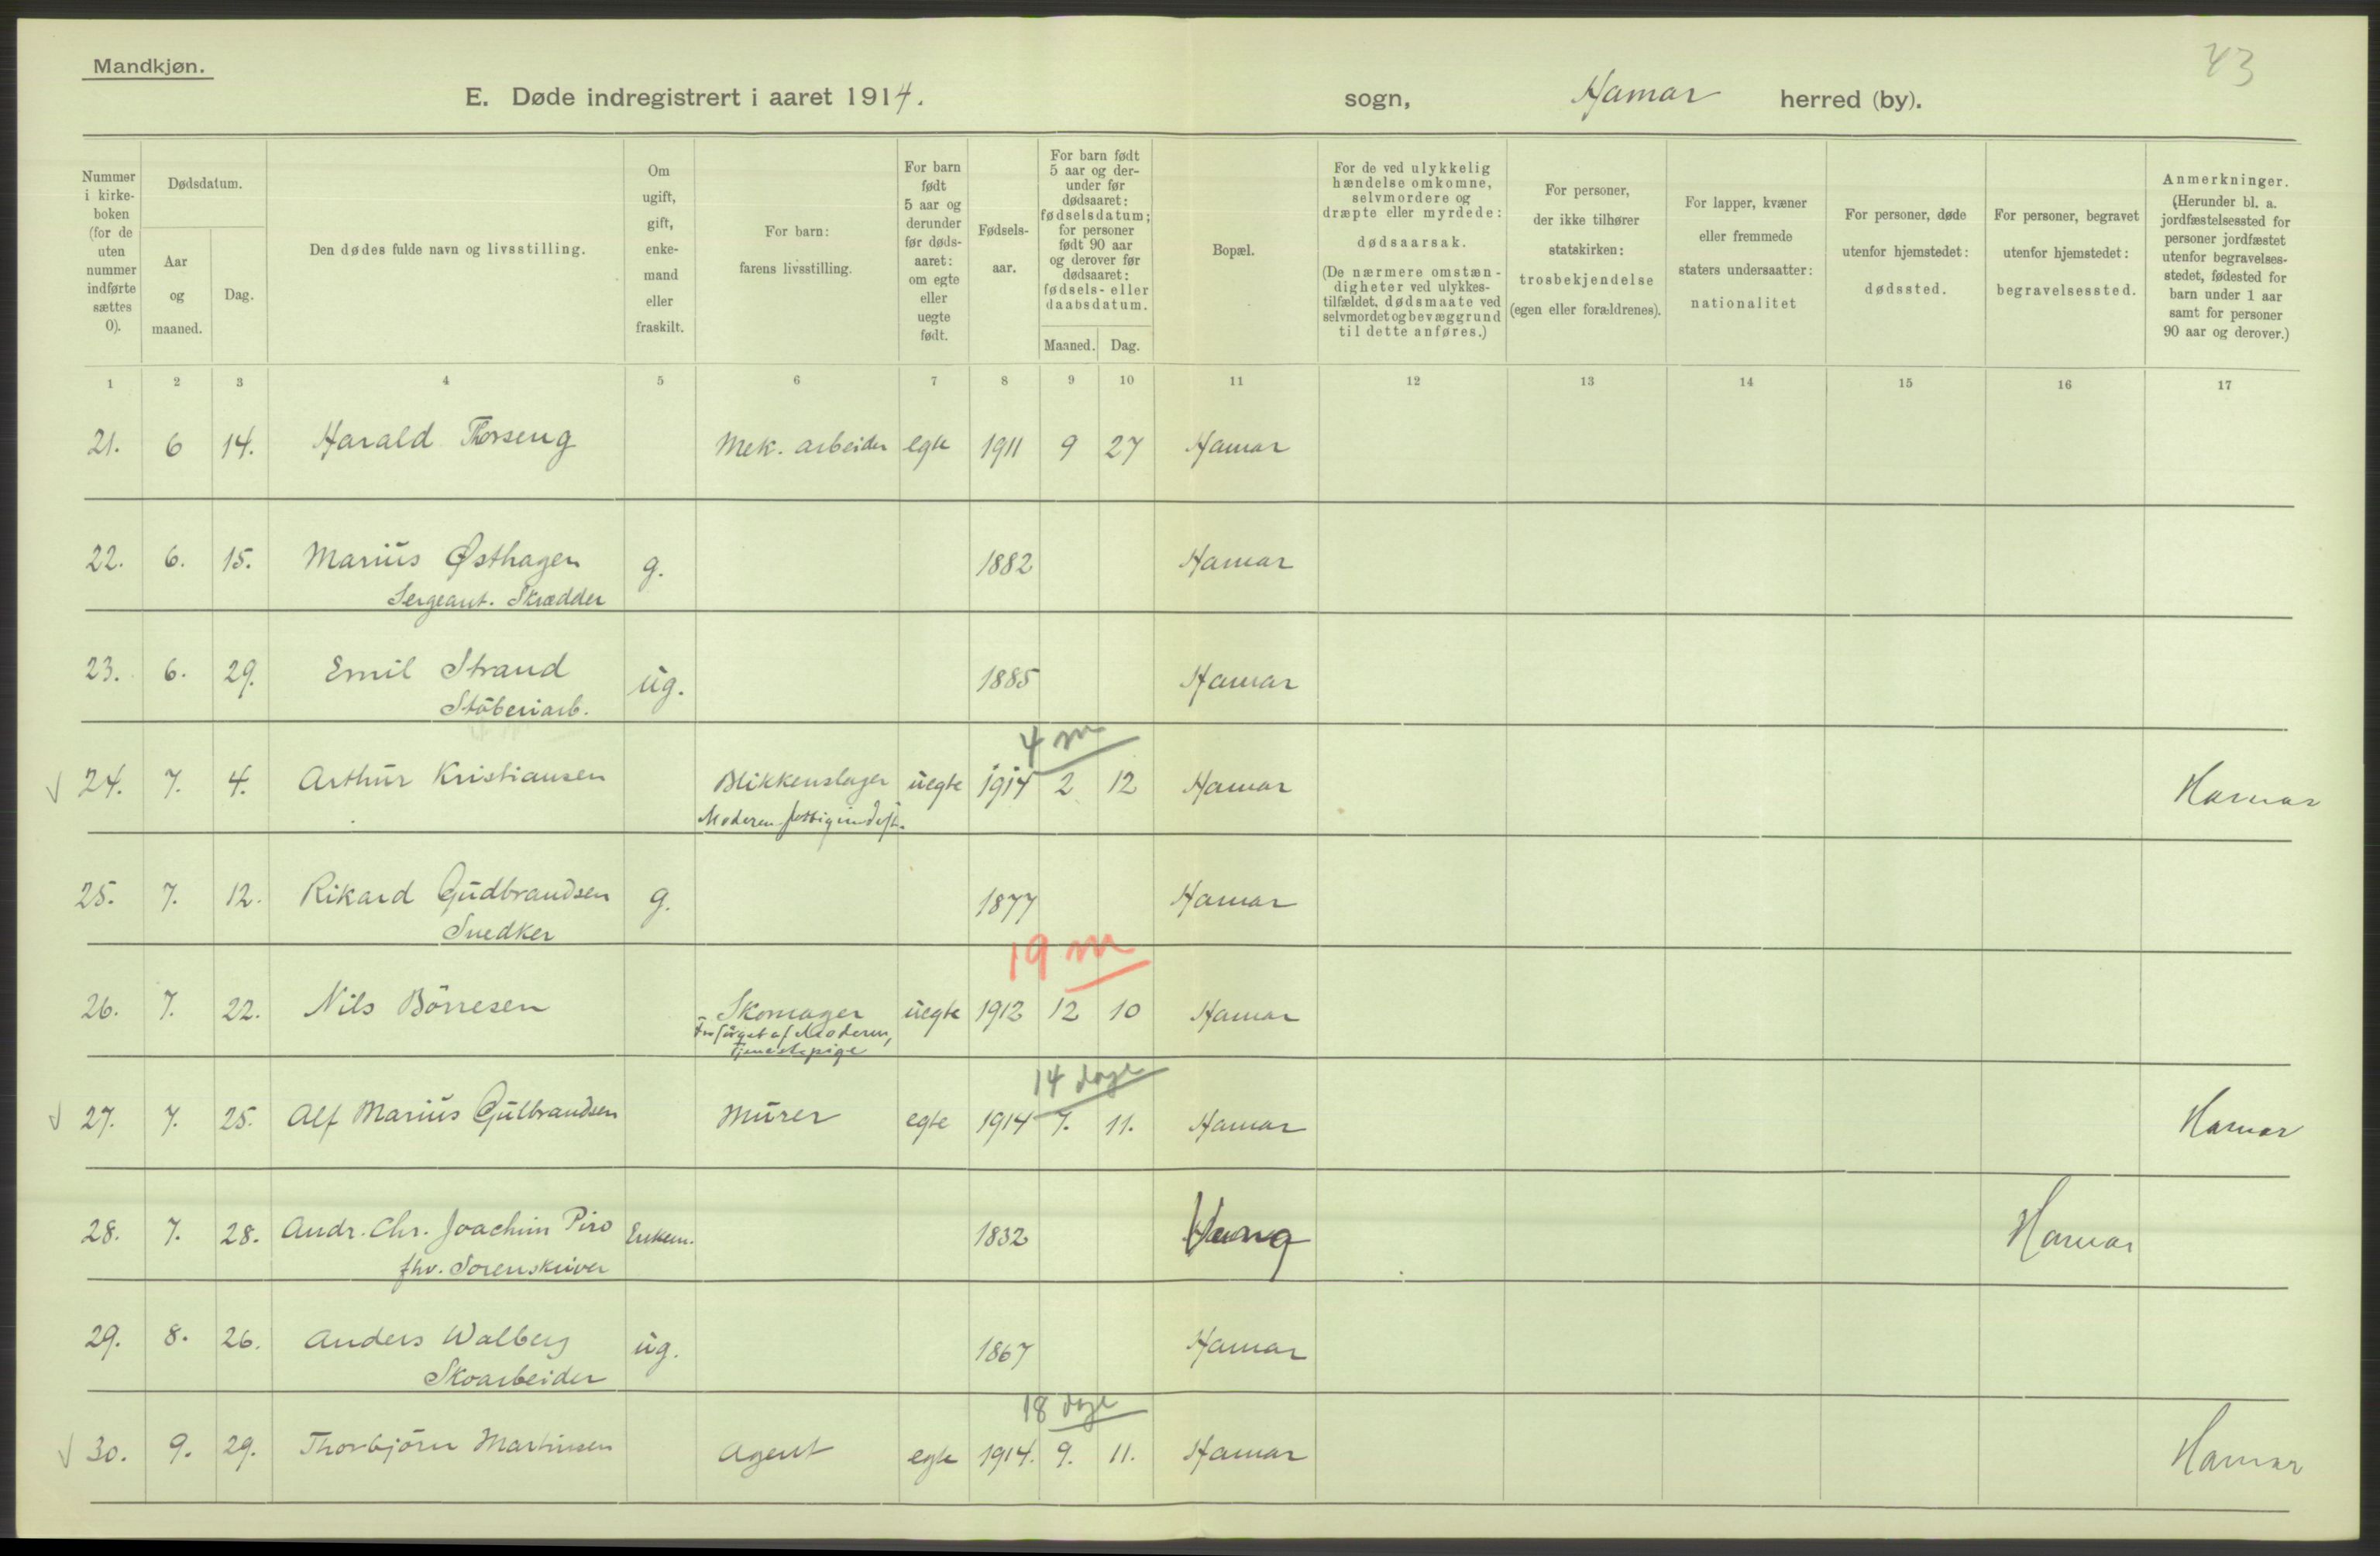 Mandkjøn.
43
E. Døde indregistrert i aaret 1914. sogn, Hamar herred (by).
Nummer i kirkeboken (for de uten nummer indførte sættes 0).
Dødsdatum.
Aar og maaned.
Dag.
Den dødes fulde navn og livsstilling.
Om ugift, gift, enkemand eller fraskilt.
For barn: farens livsstilling.
For barn født 5 aar og derunder før dødsaaret: om egte eller uegte født.
Fødselsaar.
For barn født 5 aar og derunder før dødsaaret: fødselsdatum; for personer født 90 aar og derover før dødsaaret: fødsels- eller daabsdatum.
Maaned. Dag.
Bopæl.
For de ved ulykkelig hændelse omkomne, selvmordere og dræpte eller myrdede: dødsaarsak. (De nærmere omstændigheter ved ulykkestilfældet, dødsmaate ved selvmordet og bevæggrund til dette anføres.)
For personer, der ikke tilhører statskirken: trosbekjendelse (egen eller forældrenes).
For lapper, kvæner eller fremmede staters undersaatter: nationalitet
For personer, døde utenfor hjemstedet: dødssted.
For personer, begravet utenfor hjemstedet: begravelsessted.
Anmerkninger. (Herunder bl. a. jordfæstelsessted for personer jordfæstet utenfor begravelsesstedet, fødested for barn under 1 aar samt for personer 90 aar og derover.)
1 2 3 4 5 6 7 8 9 10 11 12 13 14 15 16 17
21. 6 14. Harald Thorseng Mek. arbeider egte 1911 9 27 Hamar
22. 6. 15. Marius Østhagen g. 1882 Hamar
Sergeant. Skrædder
23. 6. 29. Emil Strand ug. 1885 Hamar
Støberiarb.
4 m
24. 7. 4. Arthur Kristiansen Blikkenslager uegte 1914 2 12 Hamar Hamar
Moderen
25. 7. 12. Rikard Gudbrandsen g. 1877 Hamar
Snedker
19 m
26. 7. 22. Nils Börresen Skomager uegte 1912 12 10 Hamar
Forsörget af Moderen,
Tjenestepige
14 dage
27. 7. 25. Alf Marius Gulbrandsen Murer egte 1914 7. 11. Hamar Hamar
28. 7. 28. Andr. Chr. Joachim Piro Enkem. 1832 Vang Hamar
fhv. Sorenskriver
29. 8. 26. Anders Walberg ug. 1867 Hamar
Skoarbeider
18 dage
30. 9. 29. Thorbjörn Martinsen Agent egte 1914. 9. 11. Hamar Hamar